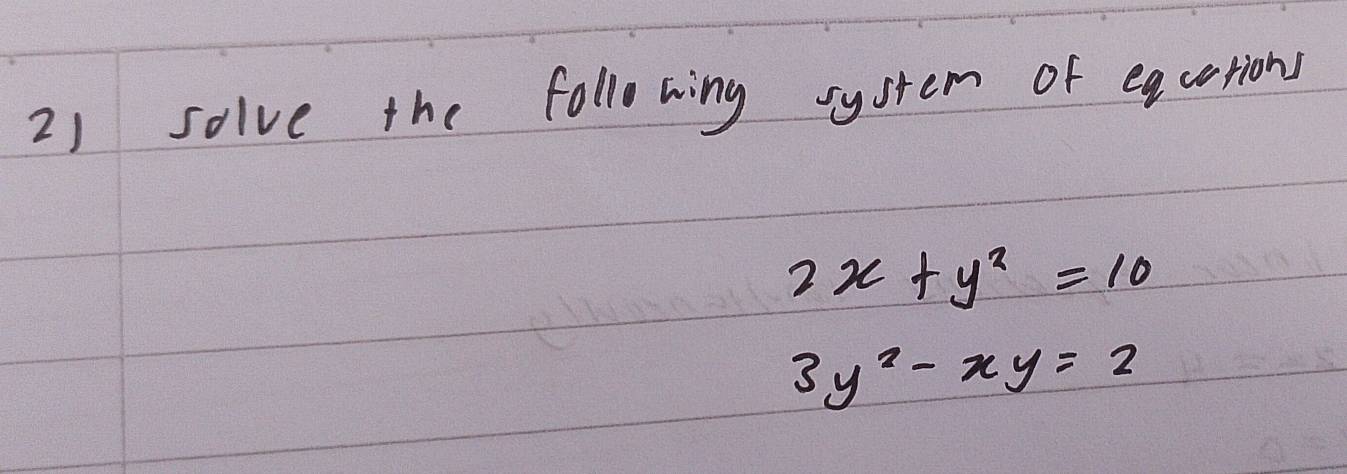 2) solve the following system of equations
2x + y² = 10
3y² - xy = 2